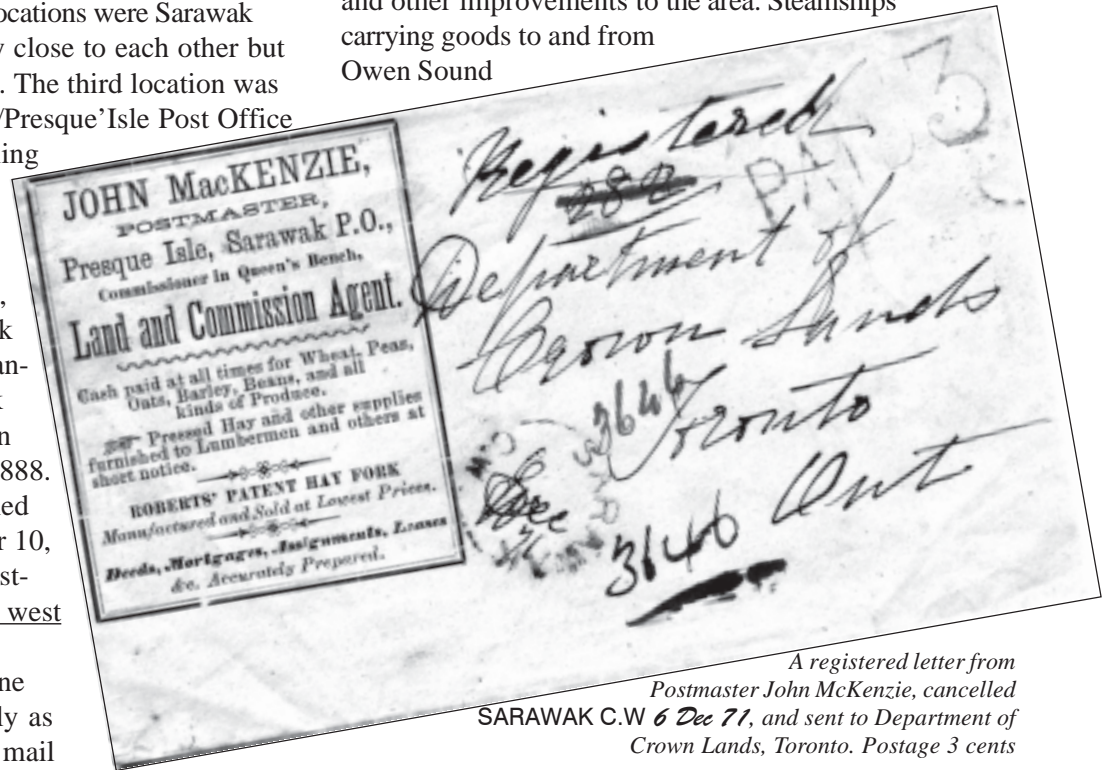 ocations were Sarawak
y close to each other but
. The third location was
/Presque'Isle Post Office
ing
,
k
an-
k
n
888.
ed
r 10,
st-
west
ne
ly as
mail
and other improvements to the area. Steamships
carrying goods to and from
Owen Sound
JOHN MacKENZIE,
POSTMASTER,
Presque Isle, Sarawak P.O.,
Commissioner in Queen's Bench,
Land and Commission Agent.
Cash paid at all times for Wheat, Peas,
Oats, Barley, Beans, and all
kinds of Produce.
Pressed Hay and other supplies
furnished to Lumbermen and others at
short notice.
ROBERTS' PATENT HAY FORK
Manufactured and Sold at Lowest Prices.
Deeds, Mortgages, Assignments, Leases
&c. Accurately Prepared.
Registered
282
PAID 3
Department of
Crown Lands
3646
Toronto
Ont
Dec
71
3646
A registered letter from
Postmaster John McKenzie, cancelled
SARAWAK C.W 6 Dec 71, and sent to Department of
Crown Lands, Toronto. Postage 3 cents